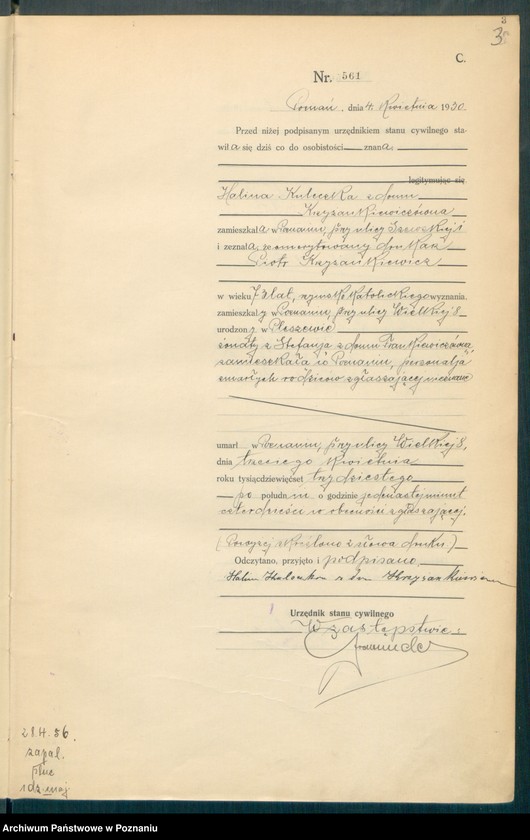 3
3
C.
Nr. 561
Poznań, dnia 4. Kwietnia 1930.
Przed niżej podpisanym urzędnikiem stanu cywilnego sta-
wiła się dziś co do osobistości znana:
legitymując się
Halina Kuleczka z domu
Krzysankiewiczówna
zamieszkała w Poznaniu, przy ulicy Szewskiej 1
i zeznała, że emerytowany drukarz
Piotr Krzysankiewicz
w wieku 73 lat, rzymsko katolickiego wyznania.
zamieszkały w Poznaniu, przy ulicy Wielkiej 8
urodzony w Pleszewie
żonaty z Stefanją z domu
zamieszkała w Poznaniu, personalja
zmarłych rodziców zgłaszającej nieznane
umarł w Poznaniu, przy ulicy Wielkiej 8,
dnia trzeciego Kwietnia
roku tysiącdziewięćset trzydziestego
po południu o godzinie jedenastej minut
czterdzieści w obecności zgłaszającej.
(Powyżej skreślono 2 słowa druku)
Odczytano, przyjęto i podpisano
Halina Kuleczka z dom Krzysankiewicz
Urzędnik stanu cywilnego
W zastępstwie:
28.4.56.
zapal.
płuc
1 dz
Archiwum Państwowe w Poznaniu